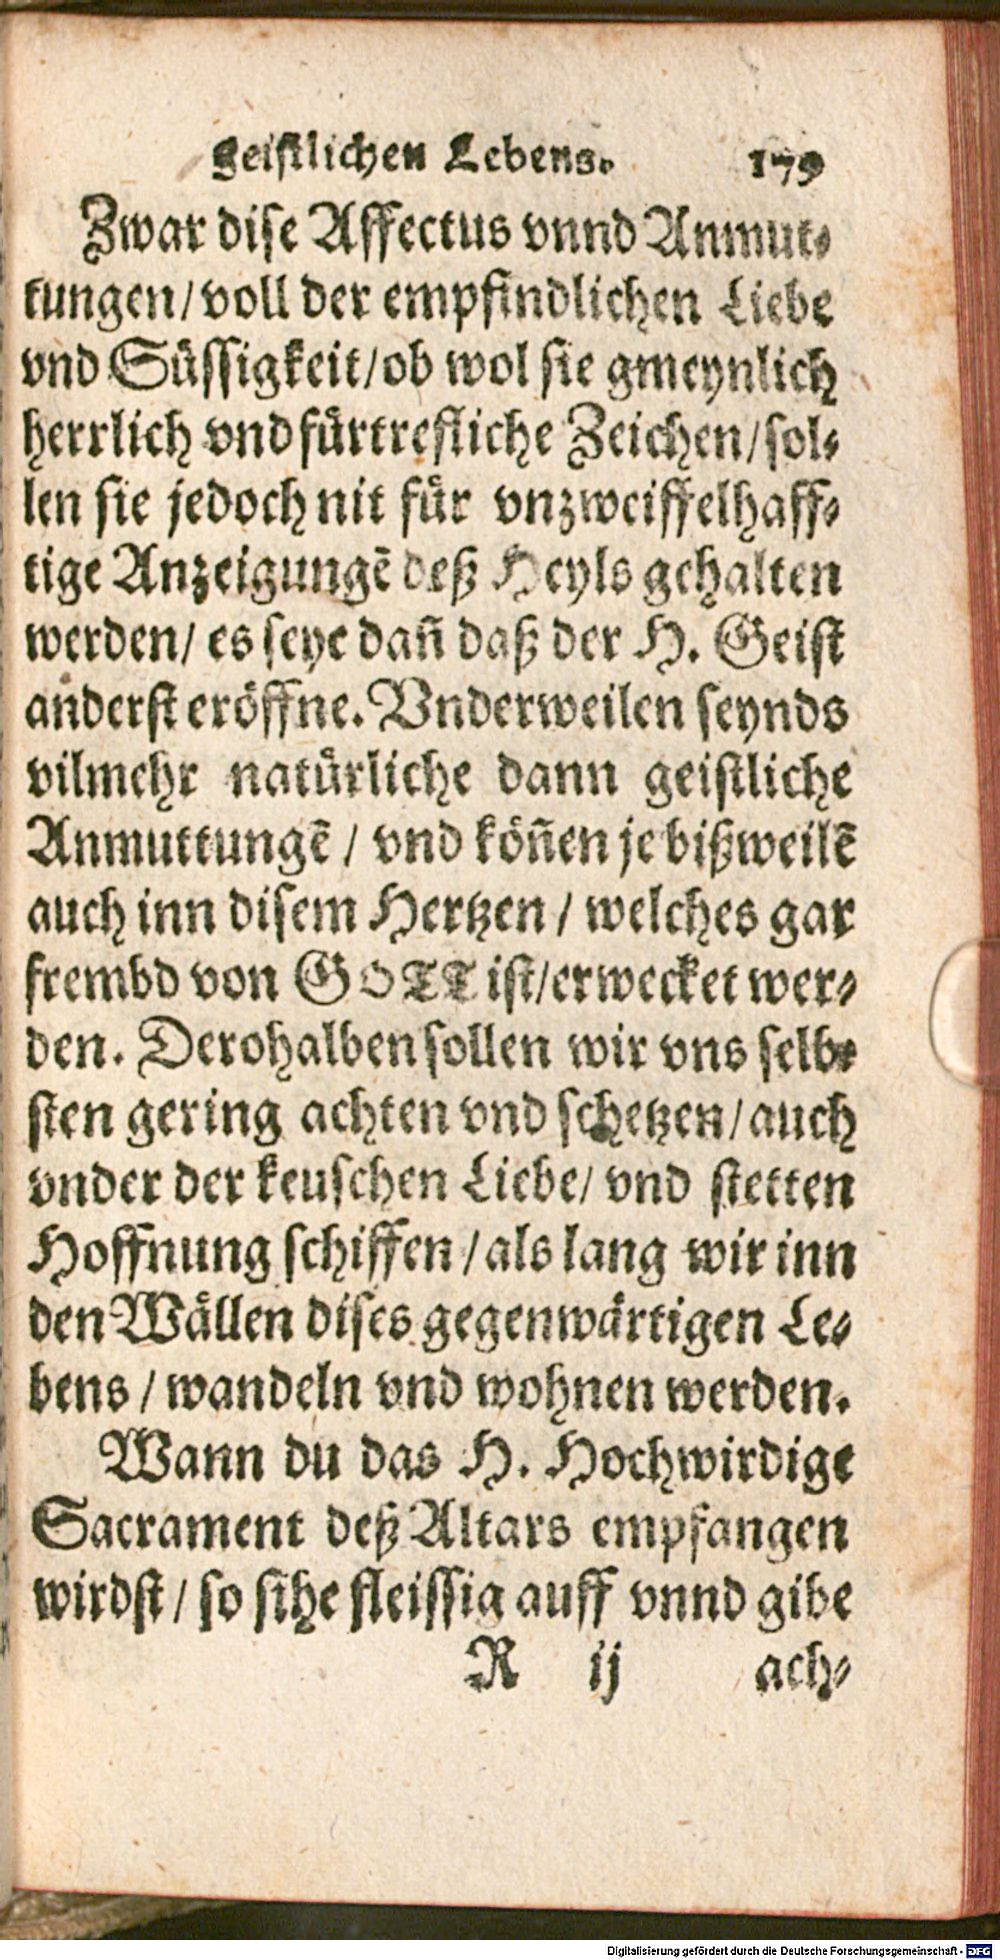 geistlichen Lebens. 179
Zwar dise Affectus vnnd Anmut⸗
tungen/ voll der empfindlichen Liebe
vnd Süssigkeit/ ob wol sie gmeynlich
herrlich vnd fürtrefliche Zeichen/ sol⸗
len sie jedoch nit für vnzweiffelhaff⸗
tige Anzeigungē deß Heyls gehalten
werden/ es seye dañ daß der H. Geist
anderst eröffne. Vnderweilen seynds
vilmehr natürliche dann geistliche
Anmuttungē / vnd köñen je bißweilē
auch inn disem Hertzen / welches gar
frembd von GOTT ist/ erwecket wer⸗
den. Derohalben sollen wir vns selb⸗
sten gering achten vnd schetzen/ auch
vnder der keuschen Liebe/ vnd stetten
Hoffnung schiffen / als lang wir inn
den Wällen dises gegenwärtigen Le⸗
bens / wandeln vnd wohnen werden.
Wann du das H. Hochwirdige
Sacrament deß Altars empfangen
wirdst / so sihe fleissig auff vnnd gibe
R ij ach⸗
Digitalisierung gefördert durch die Deutsche Forschungsgemeinschaft - DFG